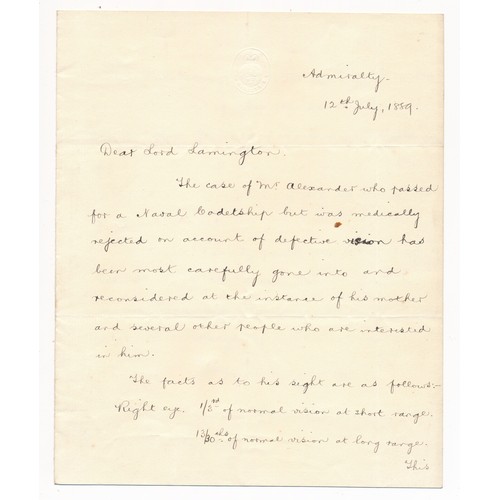 Admiralty.
12th July, 1889.
Dear Lord Lamington.
The case of Mr Alexander who passed
for a Naval Cadetship but was medically
rejected on account of defective vision has
been most carefully gone into and
reconsidered at the instance of his mother
and several other people who are interested
in him.
The facts as to his sight are as follows:-
Right eye. 1/3rd of normal vision at short range.
13/30ths of normal vision at long range.
This